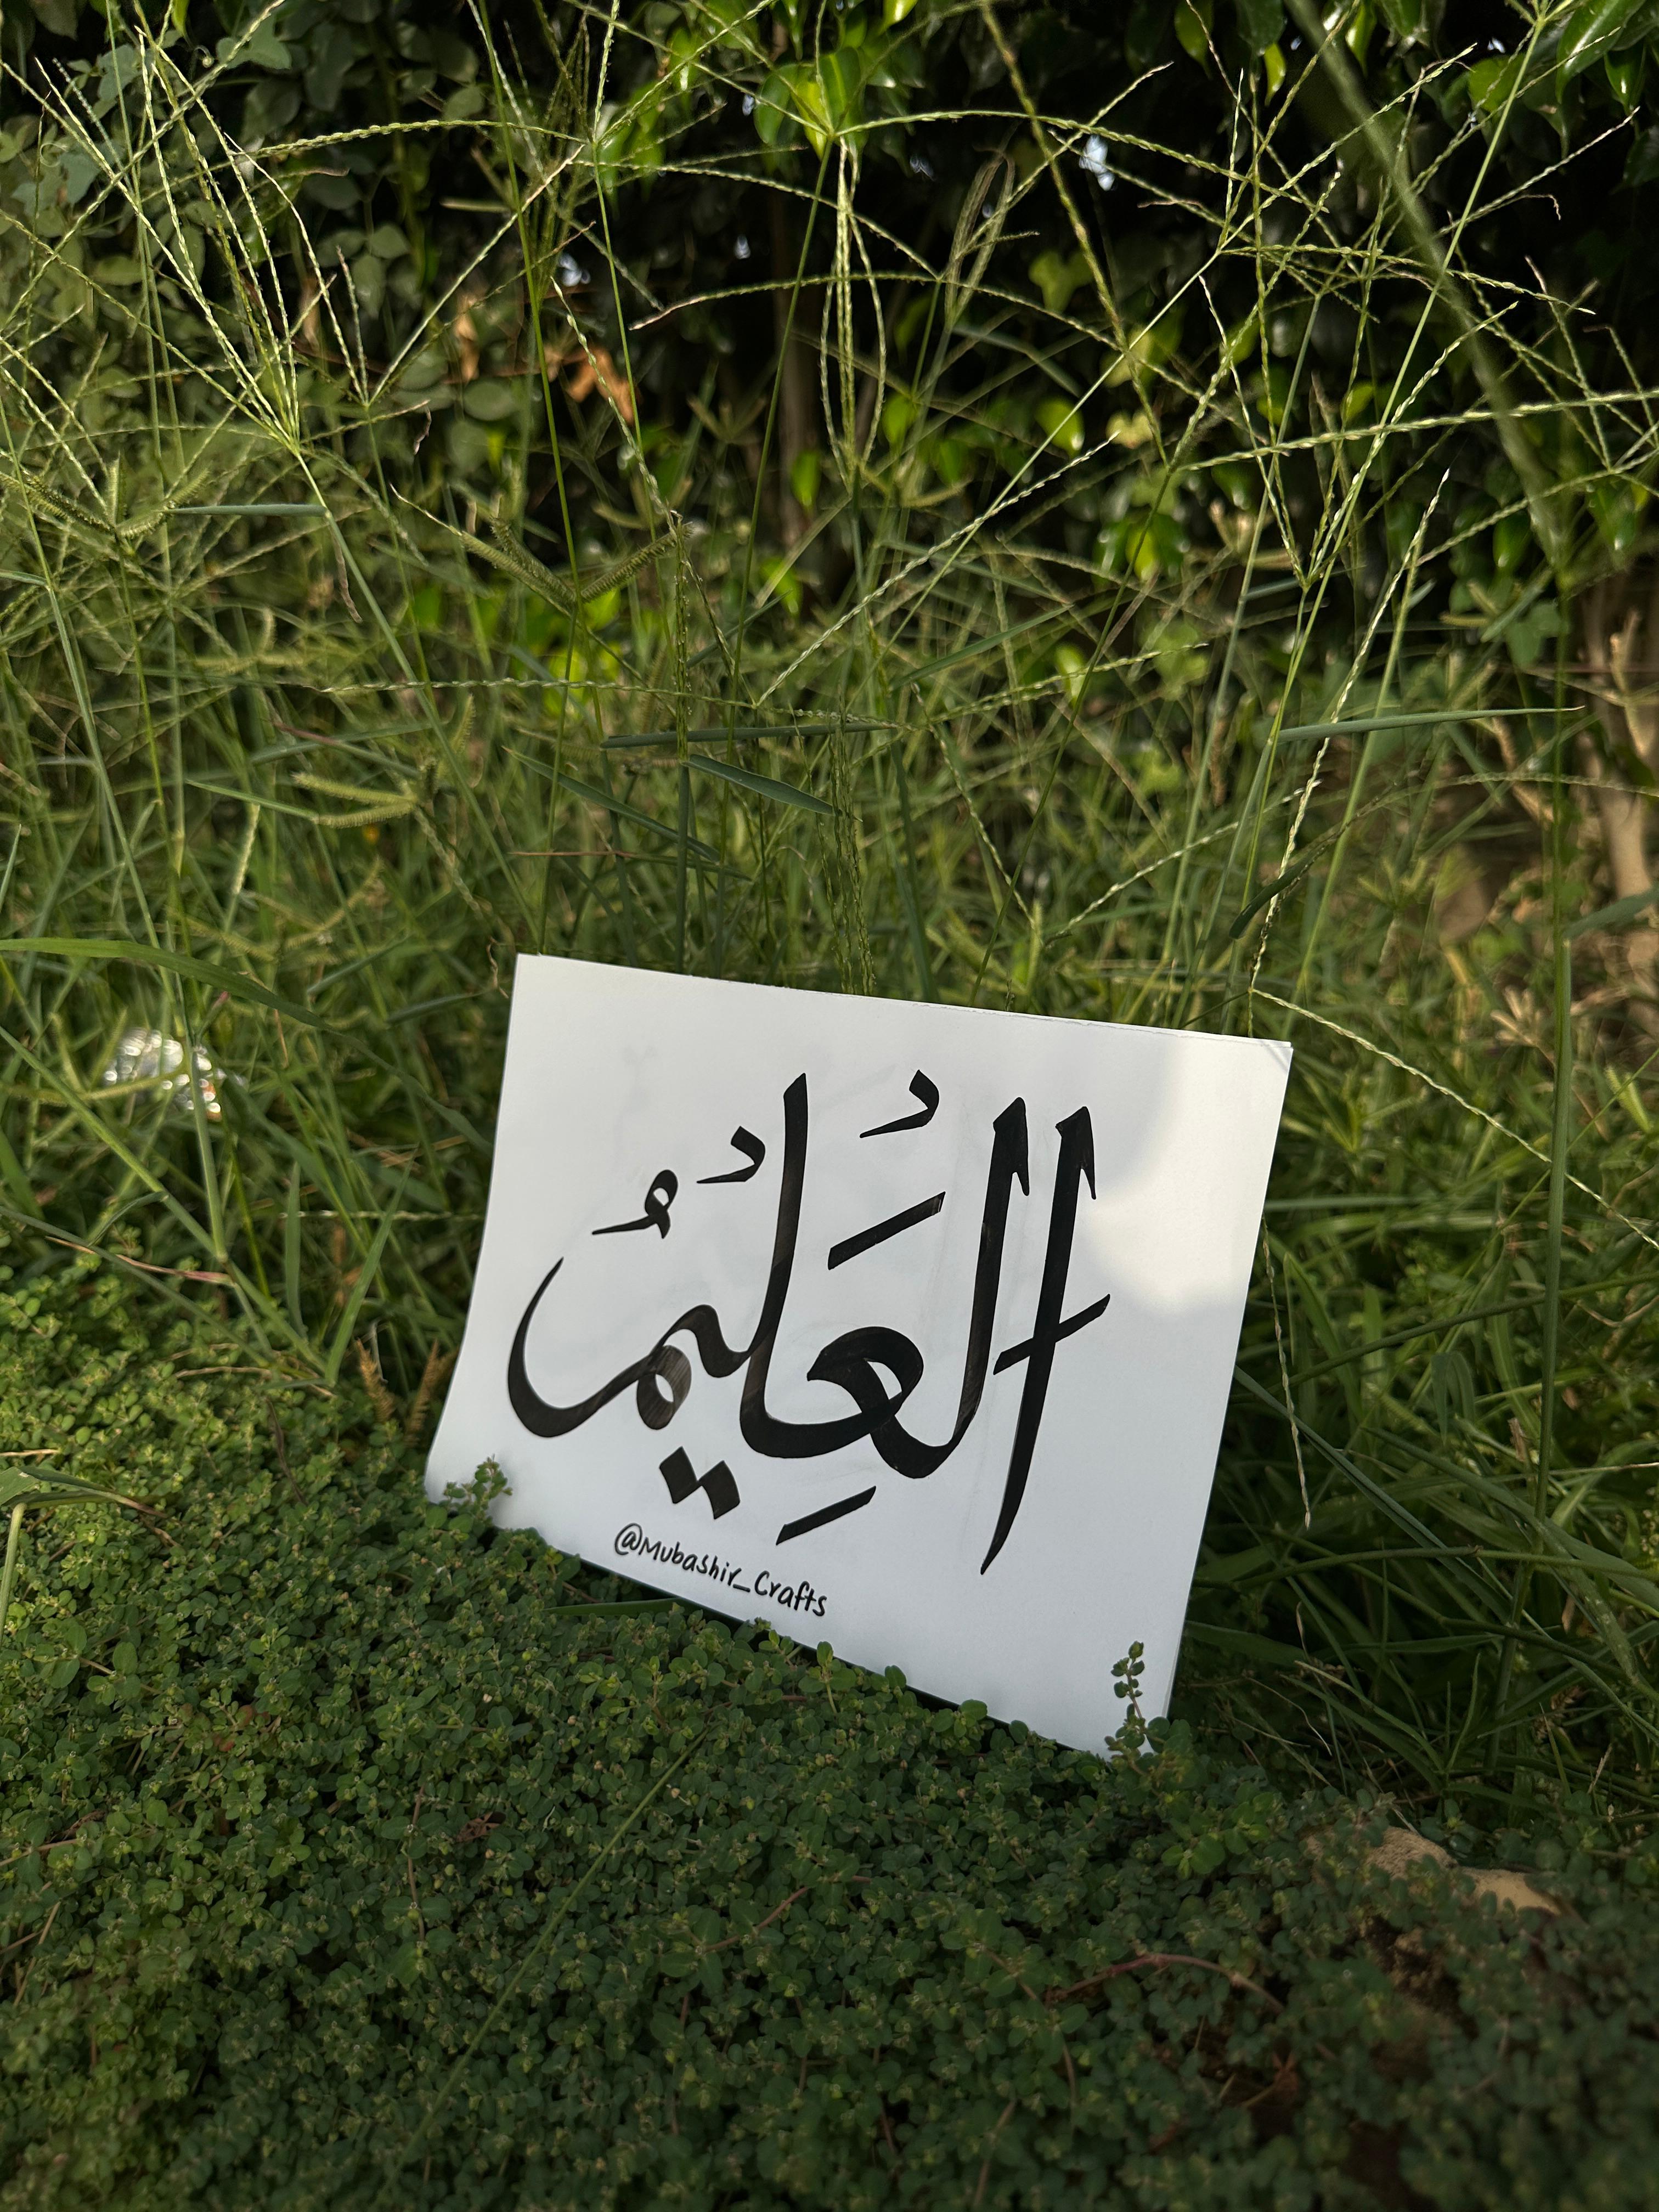 الْعَلِيْمُ
@Mubashir_Crafts